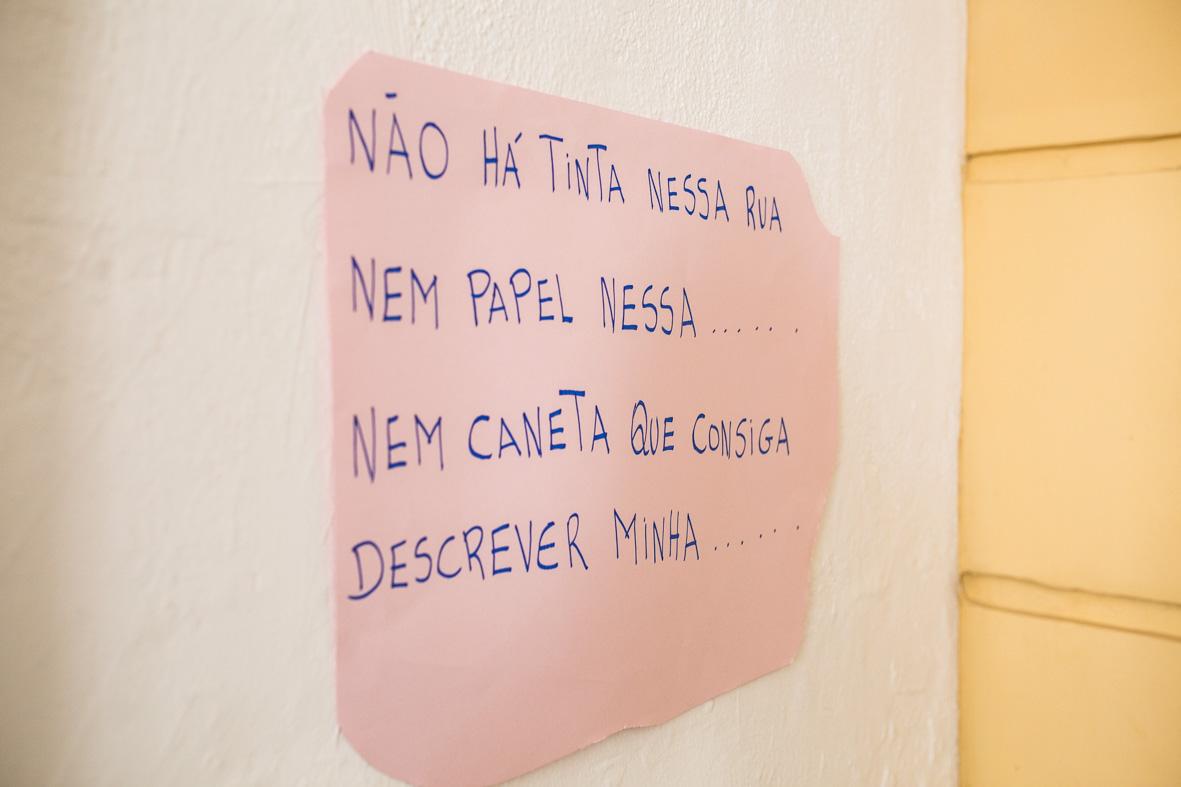 NÃO HÁ TINTA NESSA RUA
NEM PAPEL NESSA ......
NEM CANETA QUE CONSIGA
DESCREVER MINHA ......